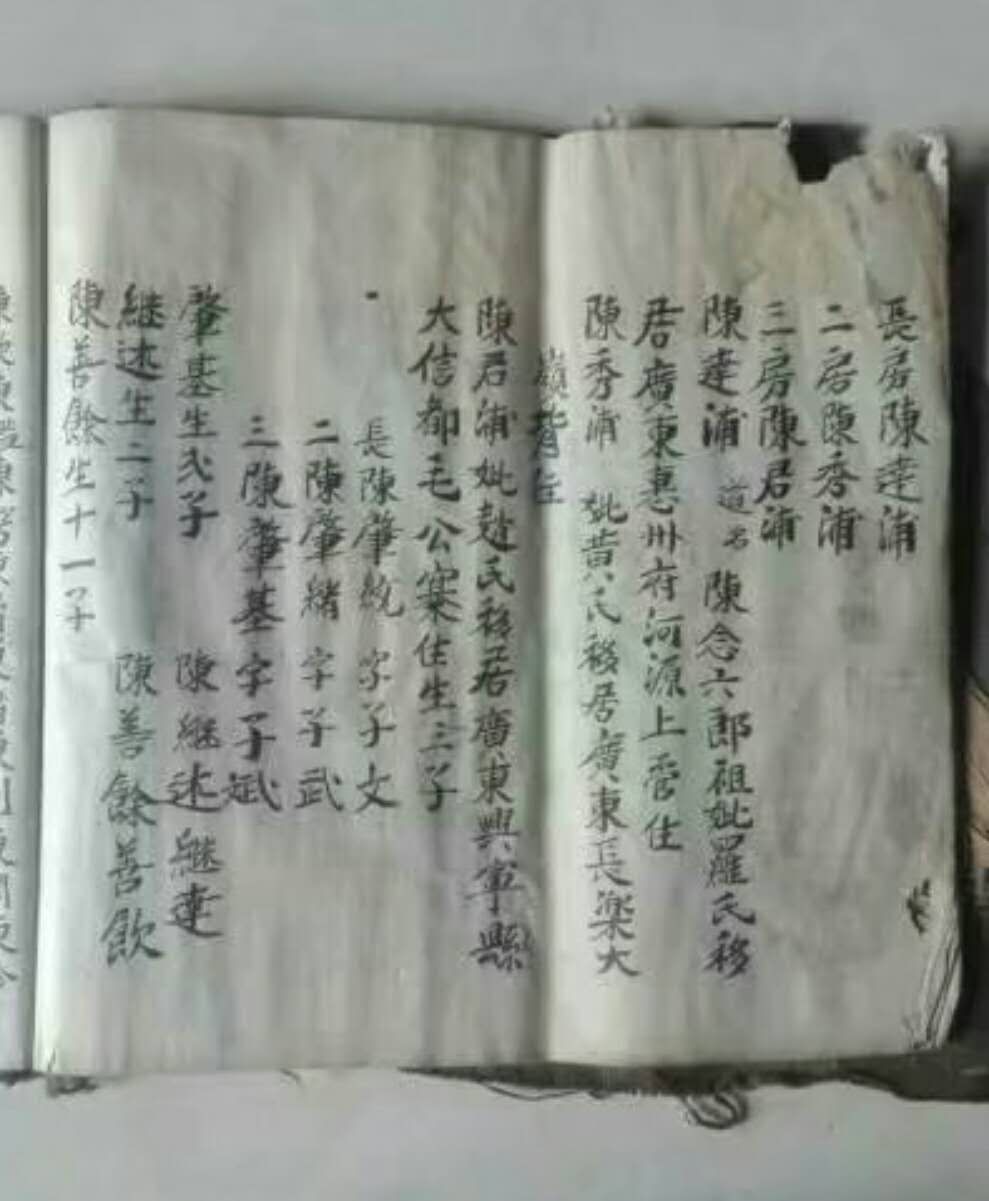 長房陳建浦
二房陳秀浦
三房陳君浦
陳建浦 道名 陳念六郎祖妣羅氏移
居廣東惠州府河源上管住
陳秀浦 妣黄氏移居廣東長樂大
嶺背住
陳君浦妣趙氏移居廣東興寧縣
大信都毛公寨住生三子
長陳肇統 字子文
二陳肇緒 字子武
三陳肇基字子斌
肇基生弍子 陳継述継建
継述生二子 陳善餘善飲
陳善餘生十一子